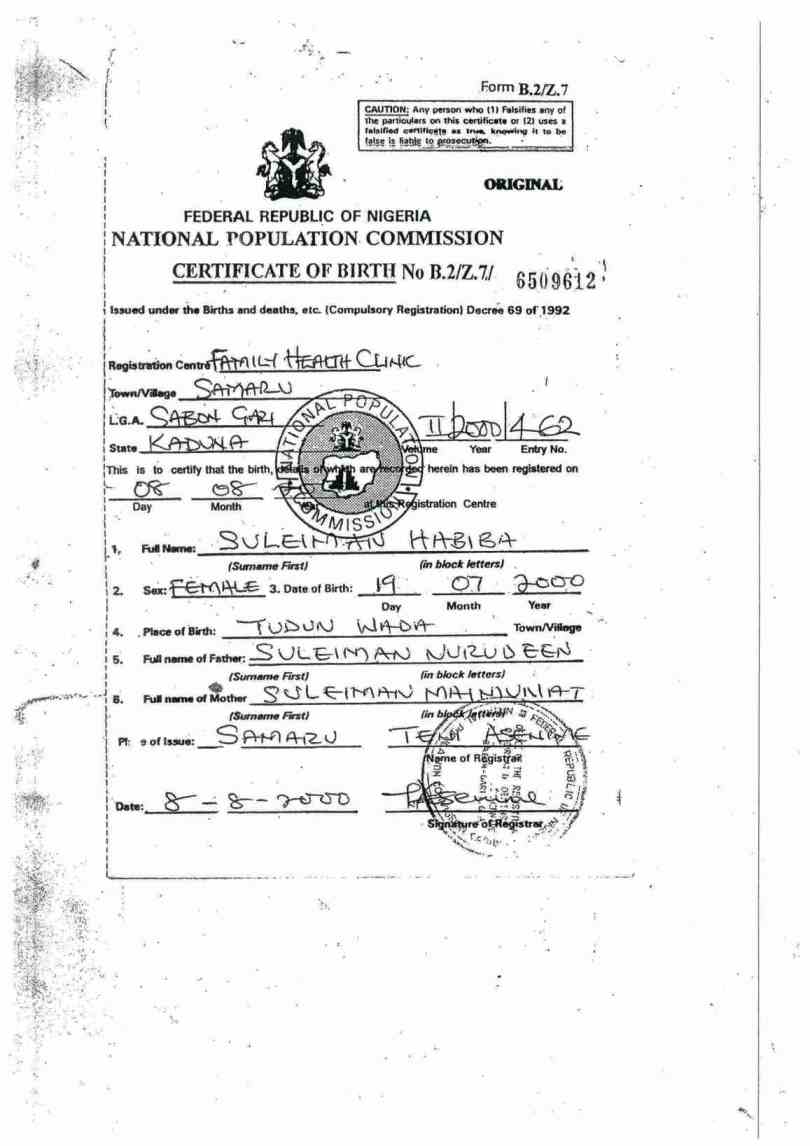 Form B.2/Z.7
CAUTION: Any person who (1) Falsifies any of
the particulars on this certificate or (2) uses a
falsified certificate as true, knowing it to be
false is liable to prosecution.
ORIGINAL
FEDERAL REPUBLIC OF NIGERIA
NATIONAL POPULATION COMMISSION
CERTIFICATE OF BIRTH No B.2/Z.7/ 6509612
Issued under the Births and deaths, etc. (Compulsory Registration) Decree 69 of 1992
Registration Centre FAMILY HEALTH CLINIC
Town/Village SAMARU
L.G.A. SABON GARI
II 2000 462
State KADUNA
Volume Year Entry No.
NATIONAL POPULATION COMMISSION
This is to certify that the birth, details of which are recorded herein has been registered on
08 08
Day Month Year at this Registration Centre
1. Full Name: SULEIMAN HABIBA
(Surname First) (in block letters)
2. Sex: FEMALE 3. Date of Birth: 19 07 2000
Day Month Year
4. Place of Birth: TUDUN WADA Town/Village
5. Full name of Father: SULEIMAN NURUDEEN
(Surname First) (in block letters)
6. Full name of Mother SULEIMAN MAIMUNAT
(Surname First) (in block letters)
of Issue: SAMARU
Name of Registrar
Date: 8-8-2000
Signature of Registrar
FEDERAL REPUBLIC OF